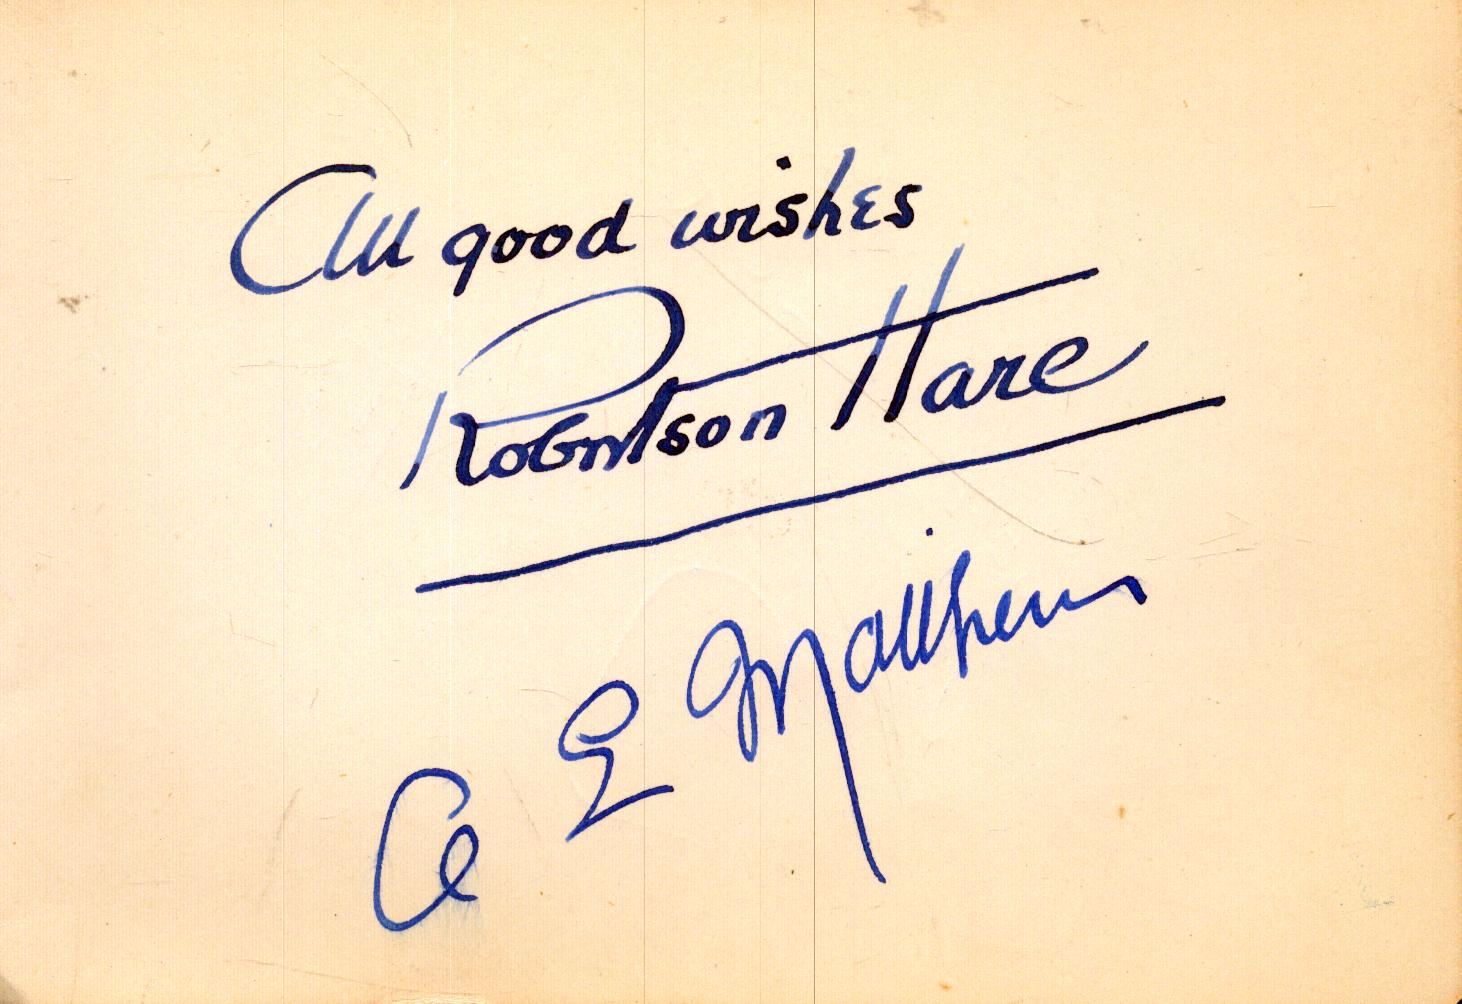 All good wishes
Robertson Hare
A E Matthews